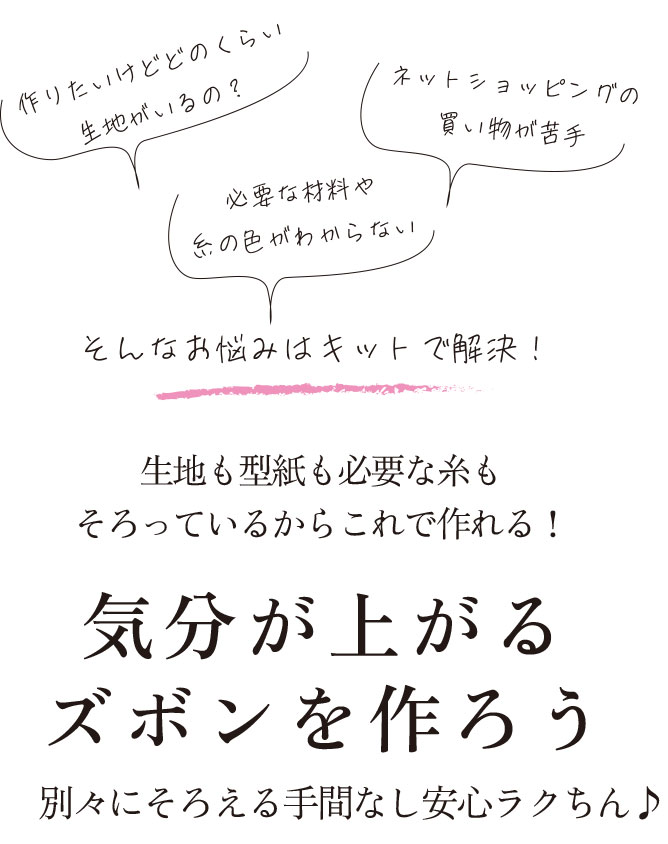 作りたいけどどのくらい
生地がいるの？
ネットショッピングの
買い物が苦手
必要な材料や
糸の色がわからない
そんなお悩みはキットで解決！
生地も型紙も必要な糸も
そろっているからこれで作れる！
気分が上がる
ズボンを作ろう
別々にそろえる手間なし安心ラクちん♪